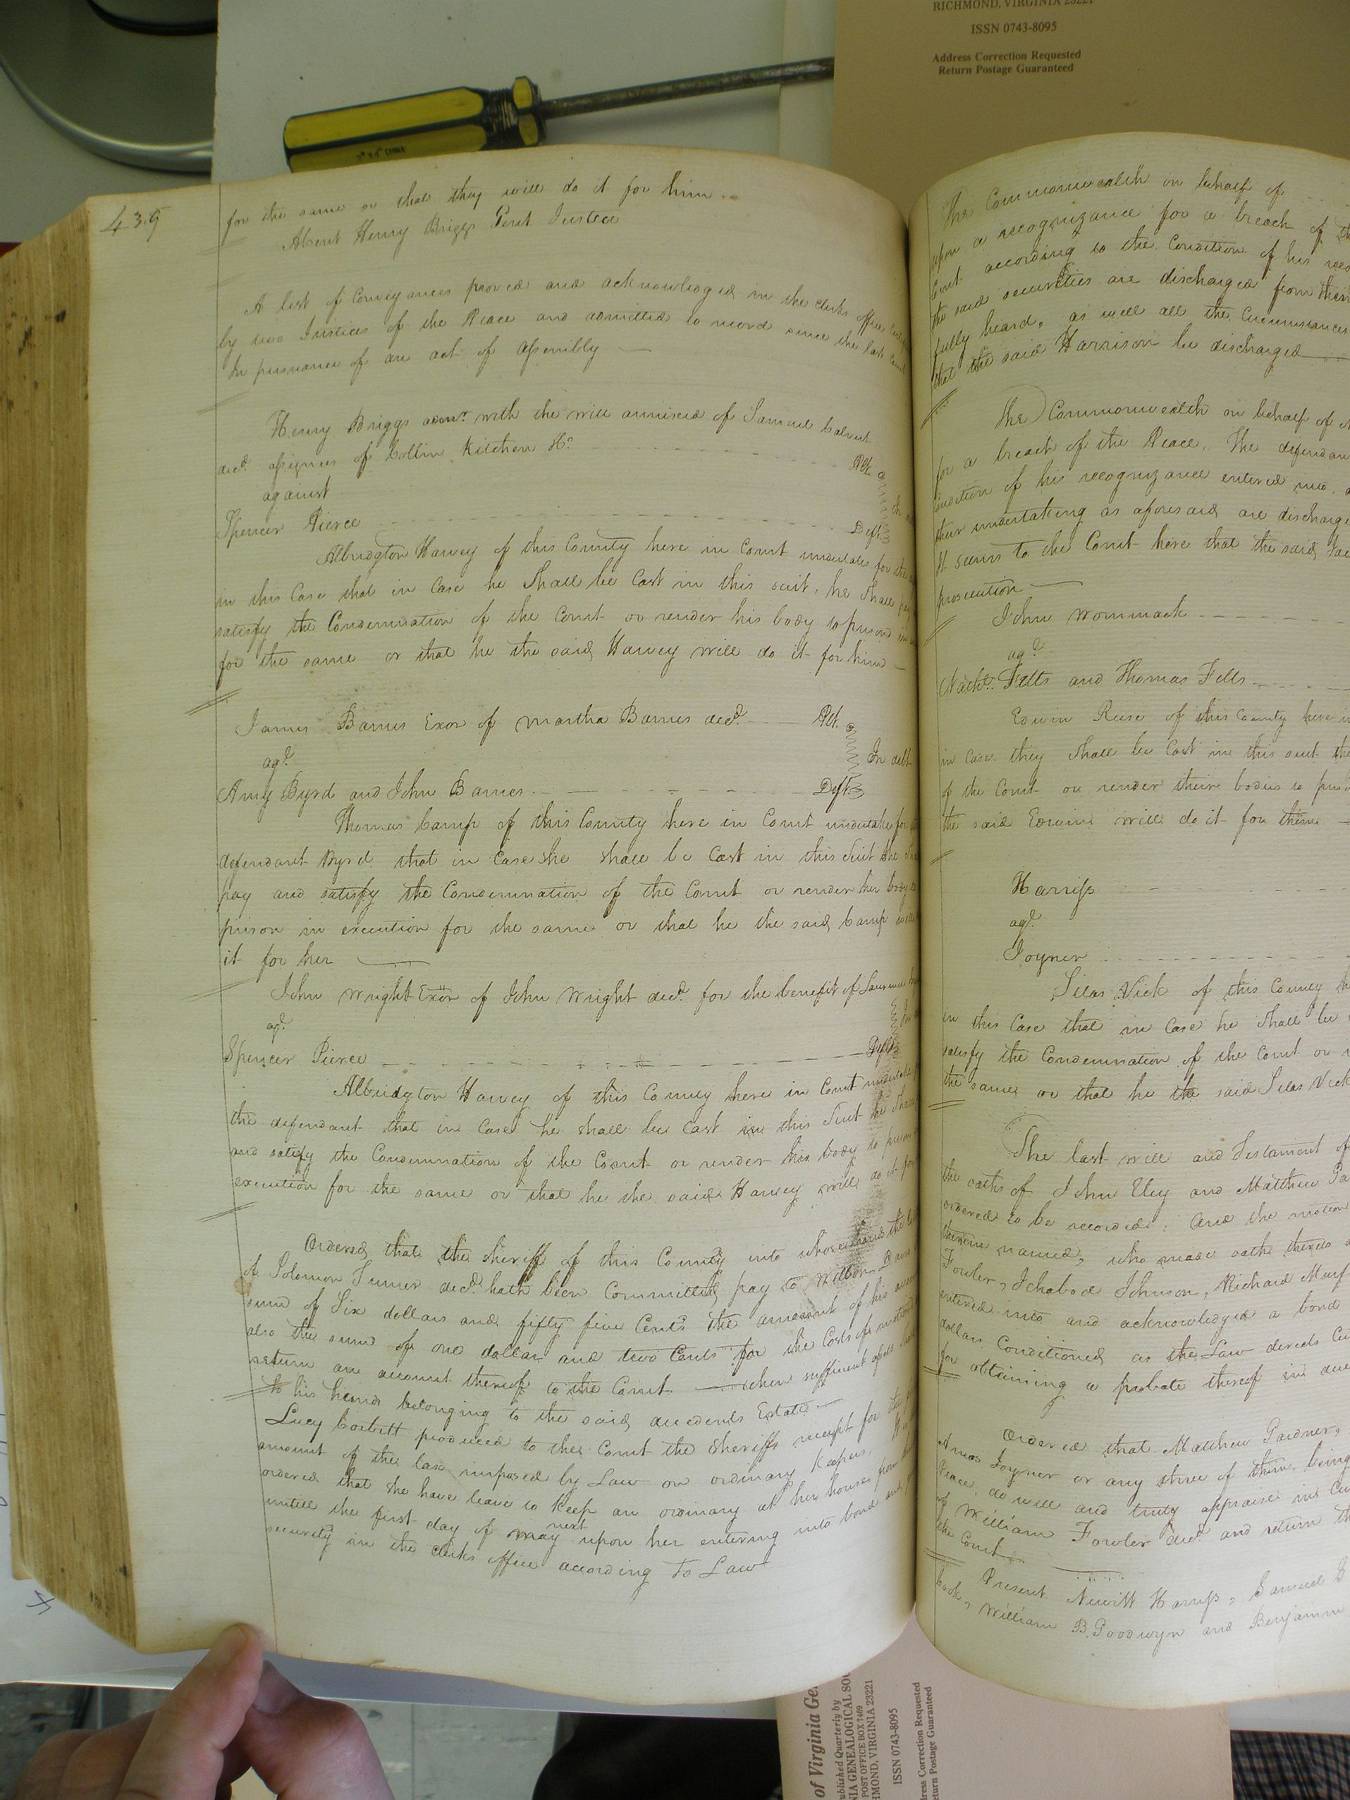 RICHMOND, VIRGINIA 23221
ISSN 0743-8095
Address Correction Requested
Return Postage Guaranteed
439
for the same or that they will do it for him
Absent Henry Briggs Gent Justice
A list of Conveyances proved and acknowledged in the clerks office
by two Justices of the Peace and admitted to record since the last Court
In pursuance of an act of Assembly
Henry Briggs admr. with the will annexed of Samuel Calvert
decd. assignee of Collin Kitchen
Plt.
against
Spencer Pierce
Deft
Albridgton Harvey of this County here in Court undertakes for the
in this Case that in Case he Shall be Cast in this suit, he Shall pay
satisfy the Condemnation of the Court or render his body to prison
for the same or that he the said Harvey will do it for him
James Barnes Exor of Martha Barnes decd.
Plt.
agt.
In debt
Amy Byrd and John Barnes
Defts
Thomas Camp of this County here in Court undertakes for
defendant Byrd that in Case she shall be Cast in this Suit she
pay and satisfy the Condemnation of the Court or render her body
prison in execution for the same or that he the said Camp will
it for her
John Wright Exor of John Wright decd. for the benefit of
agt.
Spencer Pierce
Deft
Albridgton Harvey of this County here in Court undertakes
the defendant that in Case he shall be Cast in this Suit he Shall
and satisfy the Condemnation of the Court or render his body to prison
execution for the same or that he the said Harvey will do it for
Ordered that the sheriff of this County into whose hands the
of Solomon Turner decd. hath been Committed pay to
sum of Six dollars and fifty five Cents the amount of his
also the sum of one dollar and two Cents for the Costs of
return an account thereof to the Court when sufficient
to his hands belonging to the said decedents Estate
Lucy Corbitt produced to the Court the Sheriffs receipt for the
amount of the tax imposed by Law on ordinary keepers
ordered that she have leave to keep an ordinary at her house from
untill the first day of may next upon her entering into bond and
security in the clerks office according to Law
The Commonwealth on behalf of
upon a recognizance for a breach of the
Court according to the Condition of his
the said securities are discharged from their
fully heard, as well all the Circumstances
that the said Harrison be discharged
The Commonwealth on behalf of
for a breach of the Peace. The defendant
Condition of his recognizance entered into
their undertaking as aforesaid are discharged
It seems to the Court here that the said
prosecution
John Wommack
agt.
Nathl. Felts and Thomas Felts
Edwin Reese of this County here in
in case they shall be Cast in this suit
of the Court or render their bodies to prison
the said Edwin will do it for them
Harriss
agt.
Joyner
Silas Vick of this County
in this Case that in Case he Shall be
satisfy the Condemnation of the Court or
the same or that he the said Silas Vick
The last will and Testament of
the oaths of John Uley and Matthew
ordered to be recorded: And the motion
therein named, who made oath thereto
Fowler, Ichabod Johnson, Richard
entered into and acknowledged a bond
dollars Conditioned as the Law directs
for obtaining a probate thereof in due
Ordered that Matthew Gardner,
Amos Joyner or any three of them being
Peace, do well and truly appraise in
of William Fowler decd. and return
the Court
Present Newitt Harriss, Samuel
William B. Goodwyn and Benjamin
of Virginia
Published Quarterly by
GENEALOGICAL
POST OFFICE BOX 7469
RICHMOND, VIRGINIA 23221
ISSN 0743-8095
Address Correction Requested
Return Postage Guaranteed